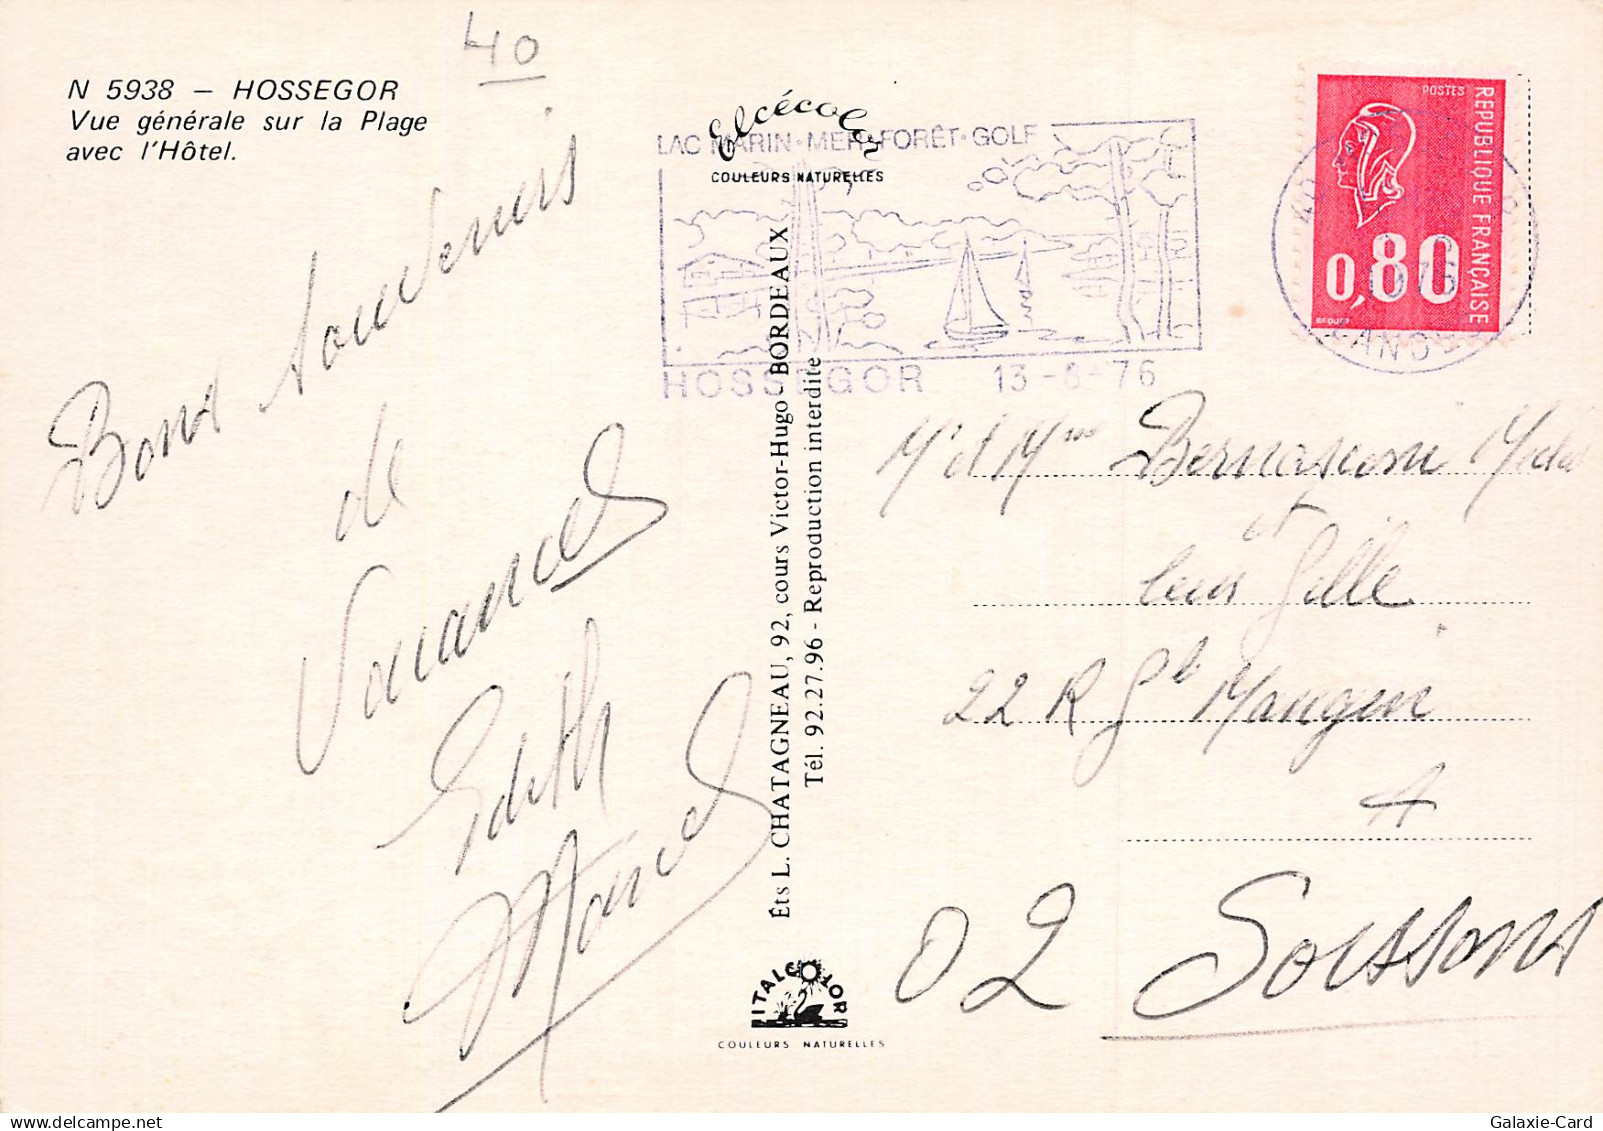 40
N 5938 – HOSSEGOR
Vue générale sur la Plage
avec l'Hôtel.
Bons Souvenirs
de
Vacances
Edith
Marcel
Elcécolor
COULEURS NATURELLES
LAC MARIN·MER·FORÊT·GOLF
HOSSEGOR 13-6-76
POSTES
REPUBLIQUE FRANÇAISE
0,80
BEQUET
LANDES
Éts L. CHATAGNEAU, 92, cours Victor-Hugo - BORDEAUX
Tél. 92.27.96 - Reproduction interdite
ITALCOLOR
COULEURS NATURELLES
Mr et Mme Bernasconi
et
leur fille
22 R Gl Mangin
A
02 Soissons
Galaxie-Card